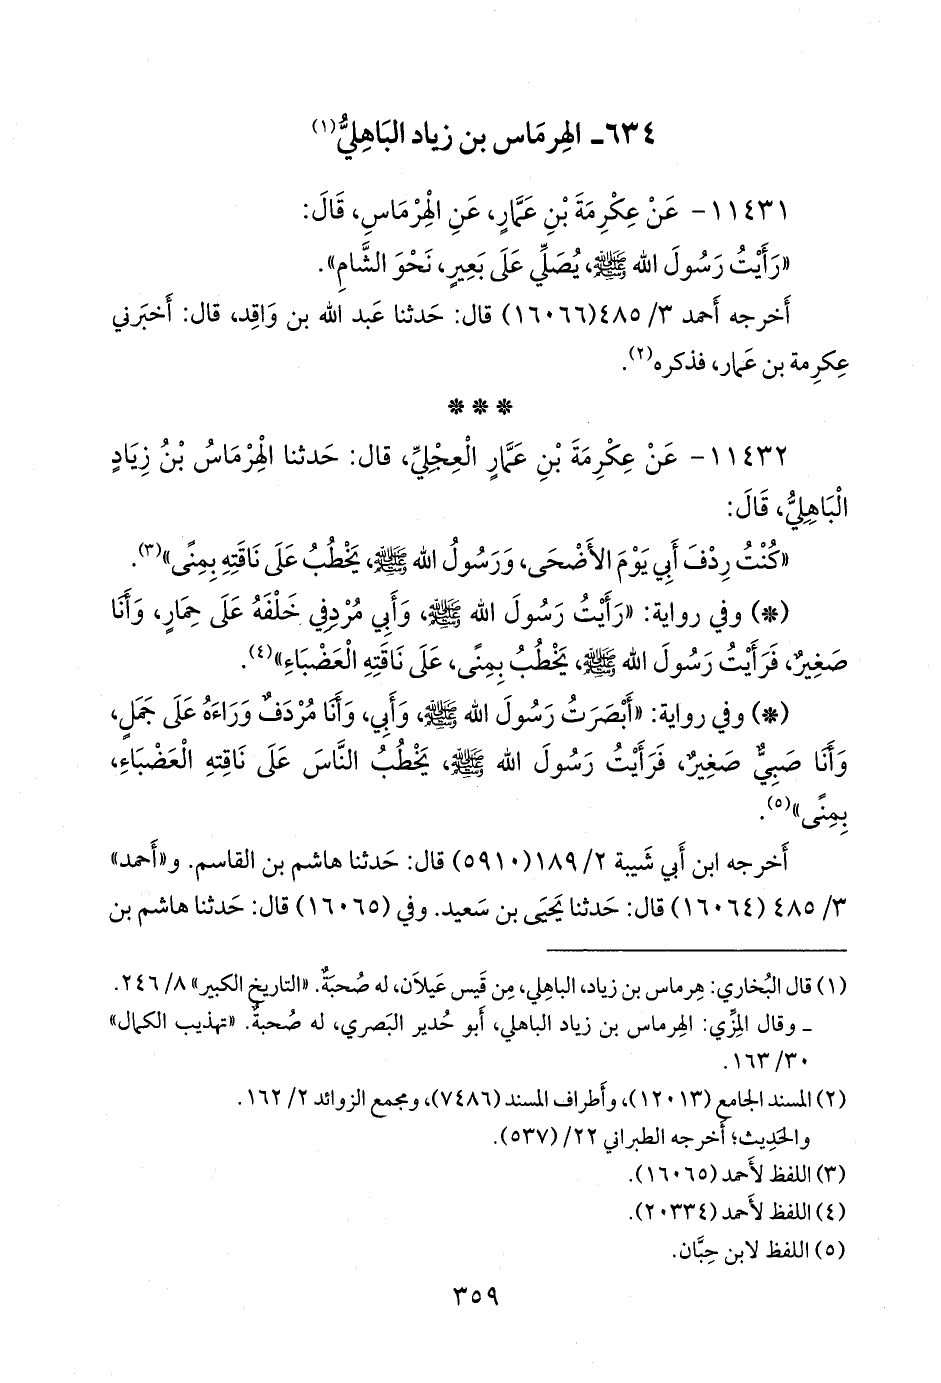 ٦٣٤ـ الهِرمَاس بن زياد البَاهِليُّ(١)
١١٤٣١ - عَنْ عِكْرِمَةَ بْنِ عَمَّارٍ، عَنِ الْهِرْمَاسِ، قَالَ:
«رَأَيْتُ رَسُولَ الله ﷺ، يُصَلِّي عَلَى بَعِيرٍ، نَحْوَ الشَّامِ».
أَخرجه أَحمد ٣/ ٤٨٥(١٦٠٦٦) قال: حَدثنا عَبد الله بن وَاقِد، قال: أَخبَرني
عِكرِمة بن عَمار، فذكره(٢).
* * *
١١٤٣٢ - عَنْ عِكْرِمَةَ بْنِ عَمَّارٍ الْعِجْلِيِّ، قال: حَدثنا الْهِرْمَاسُ بْنُ زِيَادٍ
الْبَاهِلِيُّ، قَالَ:
«كُنْتُ رِدْفَ أَبِي يَوْمَ الأَضْحَى، وَرَسُولُ الله ﷺ، يَخْطُبُ عَلَى نَاقَتِهِ بِمِنًى»(٣).
(*) وفي رواية: «رَأَيْتُ رَسُولَ الله ﷺ، وَأَبِي مُرْدِفِي خَلْفَهُ عَلَى حِمَارٍ، وَأَنَا
صَغِيرٌ، فَرَأَيْتُ رَسُولَ الله ﷺ، يَخْطُبُ بِمِنًى، عَلَى نَاقَتِهِ الْعَضْبَاءِ»(٤).
(*) وفي رواية: «أَبْصَرَتُ رَسُولَ الله ﷺ، وَأَبِي، وَأَنَا مُرْدَفٌ وَرَاءَهُ عَلَى جَمَلٍ،
وَأَنَا صَبِيٌّ صَغِيرٌ، فَرَأَيْتُ رَسُولَ الله ﷺ، يَخْطُبُ النَّاسَ عَلَى نَاقِتهِ الْعَضْبَاءِ،
بِمِنًى»(٥).
أَخرجه ابن أَبي شَيبة ٢/ ١٨٩(٥٩١٠) قال: حَدثنا هاشم بن القاسم. و«أَحمد»
٣/ ٤٨٥ (١٦٠٦٤) قال: حَدثنا يَحيَى بن سَعيد. وفي (١٦٠٦٥) قال: حَدثنا هاشم بن
(١) قال البُخاري: هِرماس بن زياد، الباهِلي، مِن قَيس عَيلَان، له صُحبَةٌ. «التاريخ الكبير» ٨/ ٢٤٦.
ـ وقال المِزِّي: الهِرماس بن زياد الباهلي، أَبو حُدير البَصري، له صُحبةٌ. «تهذيب الكمال»
٣٠/ ١٦٣.
(٢) المسند الجامع (١٢٠١٣)، وأَطراف المسند (٧٤٨٦)، ومجمع الزوائد ٢/ ١٦٢.
والحَدِيث؛ أَخرجه الطبراني ٢٢/ (٥٣٧).
(٣) اللفظ لأَحمد (١٦٠٦٥).
(٤) اللفظ لأَحمد (٢٠٣٣٤).
(٥) اللفظ لابن حِبَّان.
٣٥٩